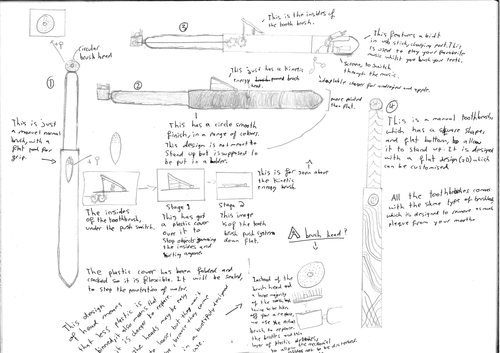 circular
brush head
①
This is just
a manual normal
brush, with a
flat pad for
grip.
③
This is the insides of
the tooth brush.
This features a built
in usb stick, charging port. This
is used to play your favourite
music whilst you brush your teeth.
Screen, to switch
through the music.
Adaptable charger for android and apple.
②
This just has a kinetic
energy powered brush
head.
more pointed
than flat.
This has a circle smooth
finish, in a range of colours.
This design is not meant to
stand up but is supposed to
be put in a holder.
④
This is a manual toothbrush
which has a square shape,
and flat bottom, to allow
it to stand up. It is designed
with a flat design (2D) which
can be customised.
All the toothbrushes come
with the same type of bristles
which is designed to remove as much
plaque from your mouth.
The insides
of the toothbrush,
under the push switch.
Stage 1
This has got
a plastic cover
over it to
stop objects jamming
the insides and
hurting anyone.
Stage 2
This image
is of the tooth
brush push system
down flat.
This is for
the kinetic
energy brush.
The plastic cover has been folded and
it is flexible. It will be sealed,
to stop the penetration of water.
A brush head?
Instead of the
brush head
a large majority
of the
for a
brush, to replace
the bristles and thin
layer of plastic
This design
of head means
that less plastic is
it also means that
it is cheaper to replace.
The heads may be easy
to
come
in a
case.